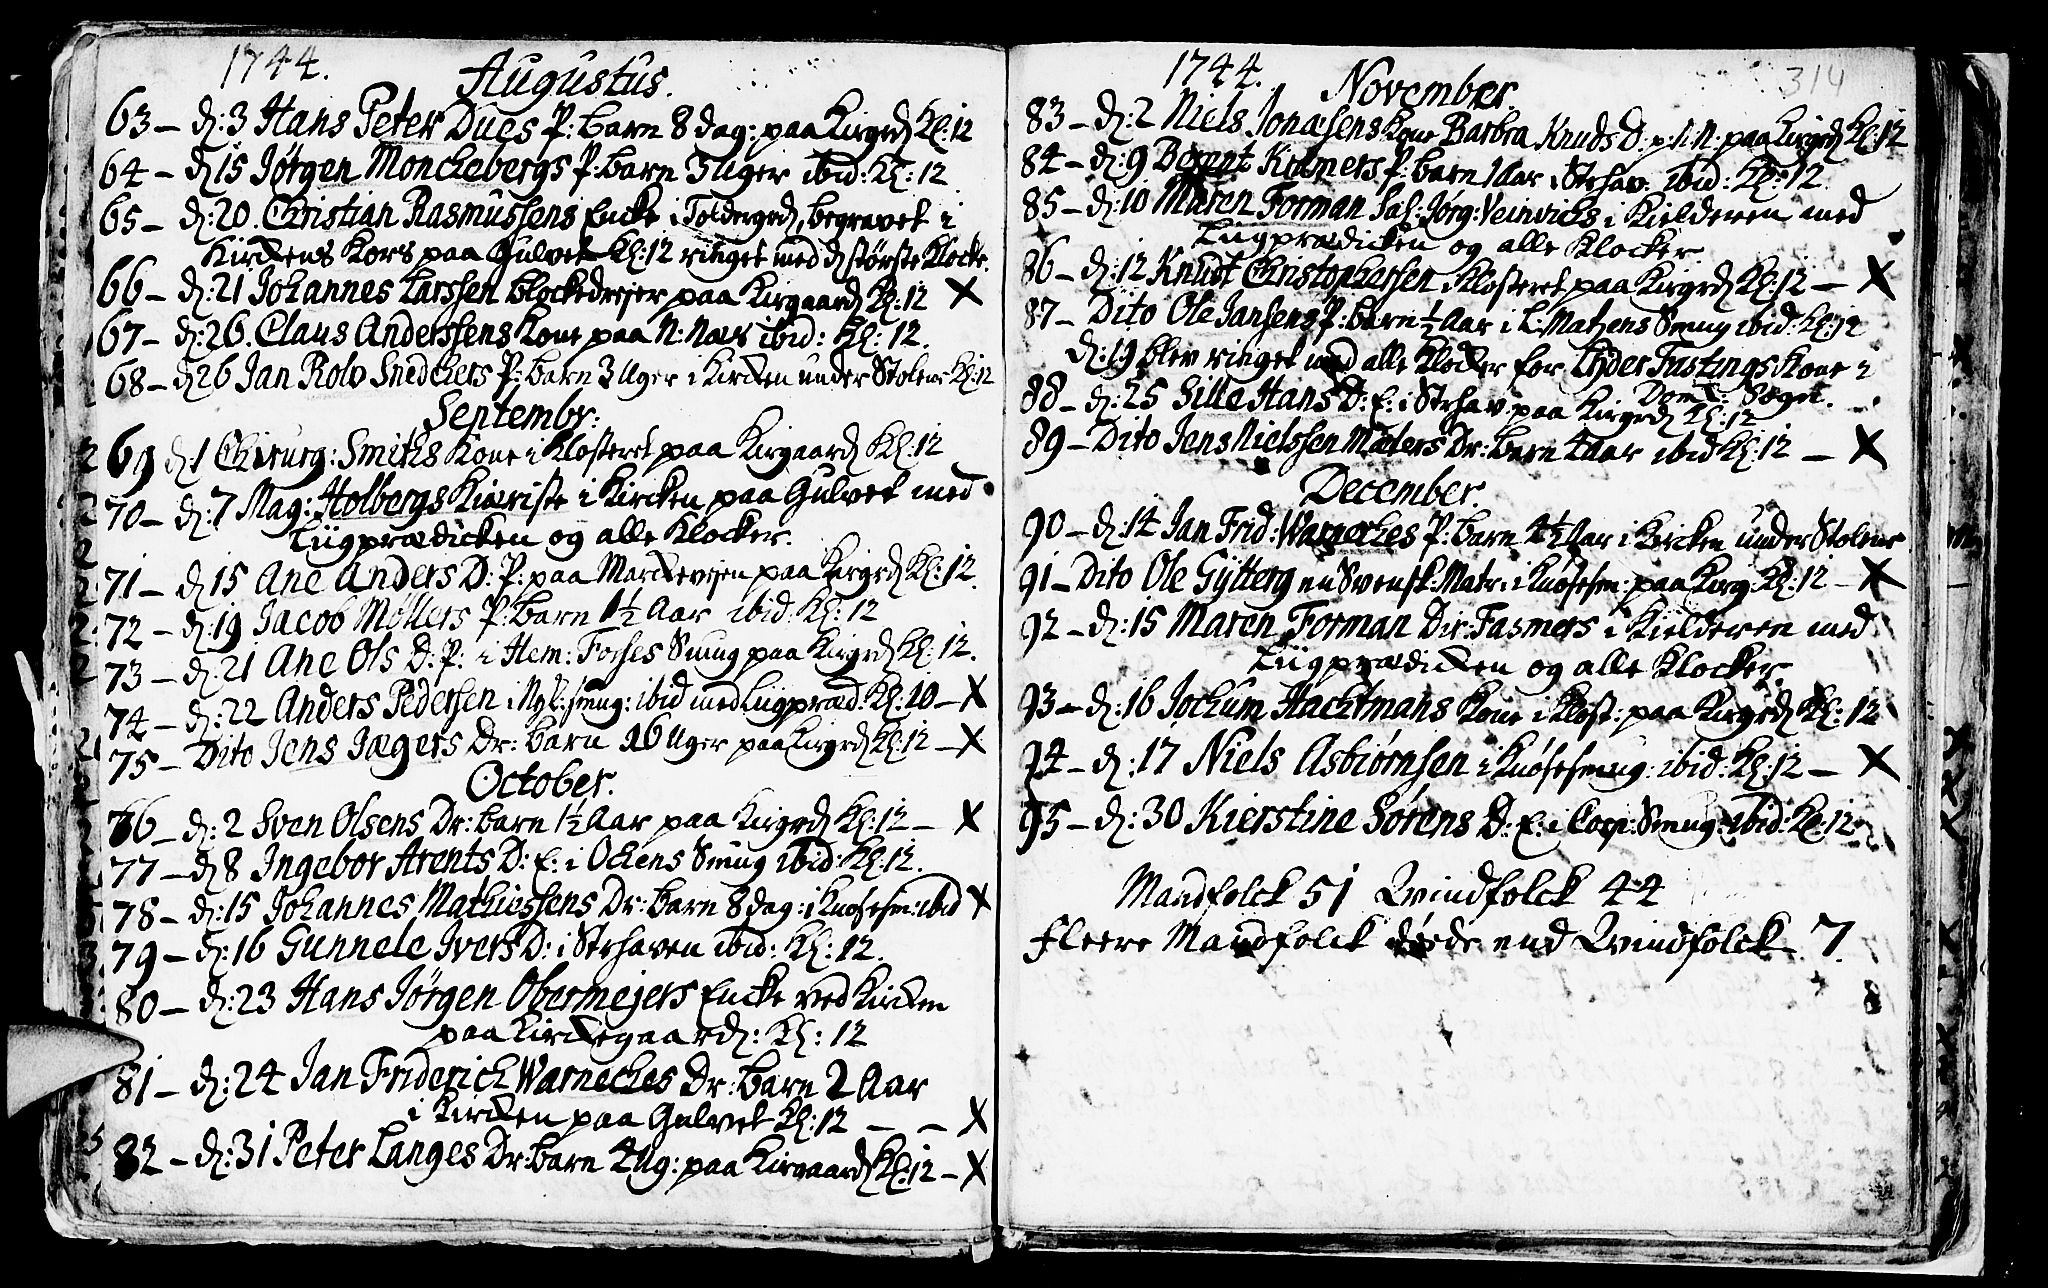 1744.
Augustus.
63 – d: 3 Hans Peter Dues P: barn 8 dag: paa Kirgrd Kl: 12
64 – d 15 Jørgen Monckebergs P: barn 3 Uger ibid: Kl: 12
65 – d: 20. Christian Rasmussens Encke i Toldengrd, begravet i
Kirckens Kors paa Gulvet Kl: 12 ringet med d største Klocke.
66 – d: 21 Johannes Larssen Blockedrejer paa Kirgaard Kl: 12 X
67 – d: 26. Claus Anderssens Kone paa N: Næs ibid: Kl: 12.
68 – d 26 Jan Rolv Snedckers P: barn 3 Uger i Kircken under Stolene Kl: 12
Septembr:
69 d: 1 Chirurg: Smiths Kone i Klosteret paa Kirgaard Kl: 12
70 – d: 7 Mag: Holbergs Kiæriste i Kircken paa Gulvet med
Liigprædicken og alle Klocker.
71 – d 15 Ane Anders D: P: paa Marckevejen paa Kirgrd Kl: 12.
72 – d: 19 Jacob Møllers P: barn 1½ Aar ibid: Kl: 12
73 – d: 21 Ane Ols D: P: i Hem: Foeses Smug paa Kirgrd Kl: 12.
74 – d: 22 Anders Pedersen i Nyl: smug: ibid med Liigpræd: Kl: 10 – X
75 – Dito Jens Jægers Dr: barn 16 Uger paa Kirgrd Kl: 12 – X
October.
76 – d: 2 Sven Olsens Dr: barn 1½ Aar paa Kirgrd Kl: 12 – X
77 – d 8 Ingebor Arents D: E: i Ockens Smug ibid: Kl: 12.
78 – d: 15 Johannes Mathiessens Dr: barn 8 dag: i Knøsesm: ibid X
79 – d: 16 Gunnele Ivers D: i Strhaven ibid: Kl: 12.
80 – d: 23 Hans Jørgen Obermejers Encke ved Kircken
paa Kirckegaard: Kl: 12
81 – d: 24 Jan Friderich Warneches Dr: barn 2 Aar
i Kircken paa Gulvet Kl: 12 – – X
82 – d: 31 Peter Langes Dr: barn 4 Ug: paa Kirgaard Kl: 12 – X
1744.
314
November.
83 – d: 2 Niels Jonasens Kone Barbra Knuds D: p: N: N: paa Kirgrd Kl: 12
84 – d: 9 Berent Kramers P: barn 1 Aar i Strhav: ibid: Kl: 12.
85 – d: 10 Maren Forman Sal: Jørg: Veinvichs i Kielderen med
Liigprædicken og alle Klocker.
86 – d: 12 Knudt Christophersen Klosteret paa Kirgrd Kl: 12 – X
87 – Dito Ole Jansens P: barn ½ Aar i L: Matzens Smug ibid: Kl: 12
d: 19 blev ringet med alle Klocker for Lyder Fastings Kone i
Domk: Soget.
88 – d: 25 Sille Hans D: E: i Strhav: paa Kirgrd Kl: 12
89 – Dito Jens Nielssen Malers Dr: barn 4 Aar ibid Kl: 12 – X
December.
90 – d: 14 Jan Frid: Warneches P: barn 4½ Aar i Kircken under Stolene
91 – Dito Ole Gytterg en Svensk: Matr: i Knøsesm: paa Kirg: Kl: 12 – X
92 – d: 15 Maren Forman Dir: Fasmers i Kielderen med
Liigprædicken og alle Klocker.
93 – d: 16 Jochum Hachtmans Kone i Klost: paa Kirgrd Kl: 12
94 – d: 17 Niels Asbiørnsen i Knøsesmug: ibid: Kl: 12 – X
95 – d: 30 Kierstine Sørens D: E: i Smug: ibid: Kl: 12
Mandfolck 51 Qvindfolck 44
Fleere Mandfolck døde end Qvindfolck 7.